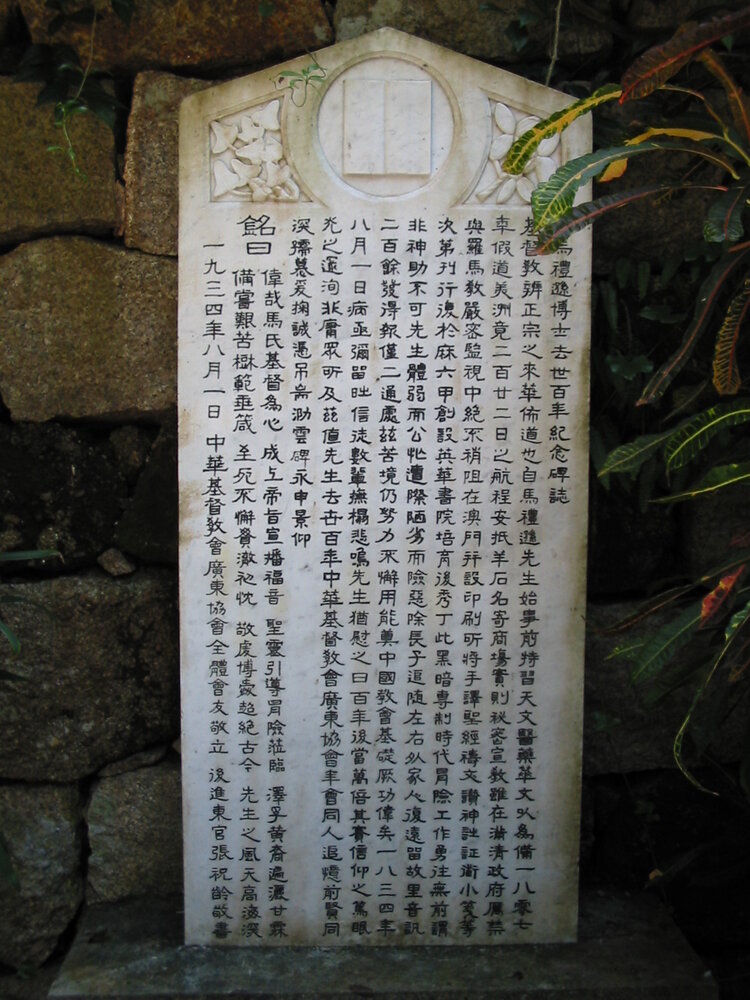 馬禮遜博士去世百年紀念碑誌
基督教辨正宗之來華佈道也自馬禮遜先生始事前持習天文醫藥華文以為備一八零七
年假道美洲竟二百廿二日之航程安抵羊石名寄商場實則祕密宣教雖在滿清政府厲禁
與羅馬教嚴密監視中絶不稍阻在澳門幷設印刷所將手譯聖經禱文讚神詩証衛小箋等
次第刊行復於麻六甲創設英華書院培育後秀丁此黑暗專制時代冒險工作勇往無前謂
非神助不可先生體弱而公忙遭際陋劣而險惡除長子追随左右外家人復遠留故里音訊
二百餘發得報僅二通處兹苦境仍努力不懈用能奠中國教會基礎厥功偉矣一八三四年
八月一日病亟彌留時信徒數輩撫榻悲鳴先生猶慰之曰百年後當萬倍其賽信仰之篤眼
光之遠洵非庸眾所及茲值先生去世百年中華基督教會廣東協會年會同人追懷前賢同
深孺慕爰掬誠憑吊耑泐雲碑永申景仰
銘曰
偉哉馬氏基督為心 成上帝旨宣播福音 聖靈引導冒險蒞臨 澤孚黄裔遍灑甘霖
備嘗艱苦楙範垂箴 至死不懈賛澈祂忱 敬虔博愛超絶古今 先生之風天高海深
一九三四年八月一日 中華基督教會廣東協會全體會友敬立 後進東官張祝齡敬書